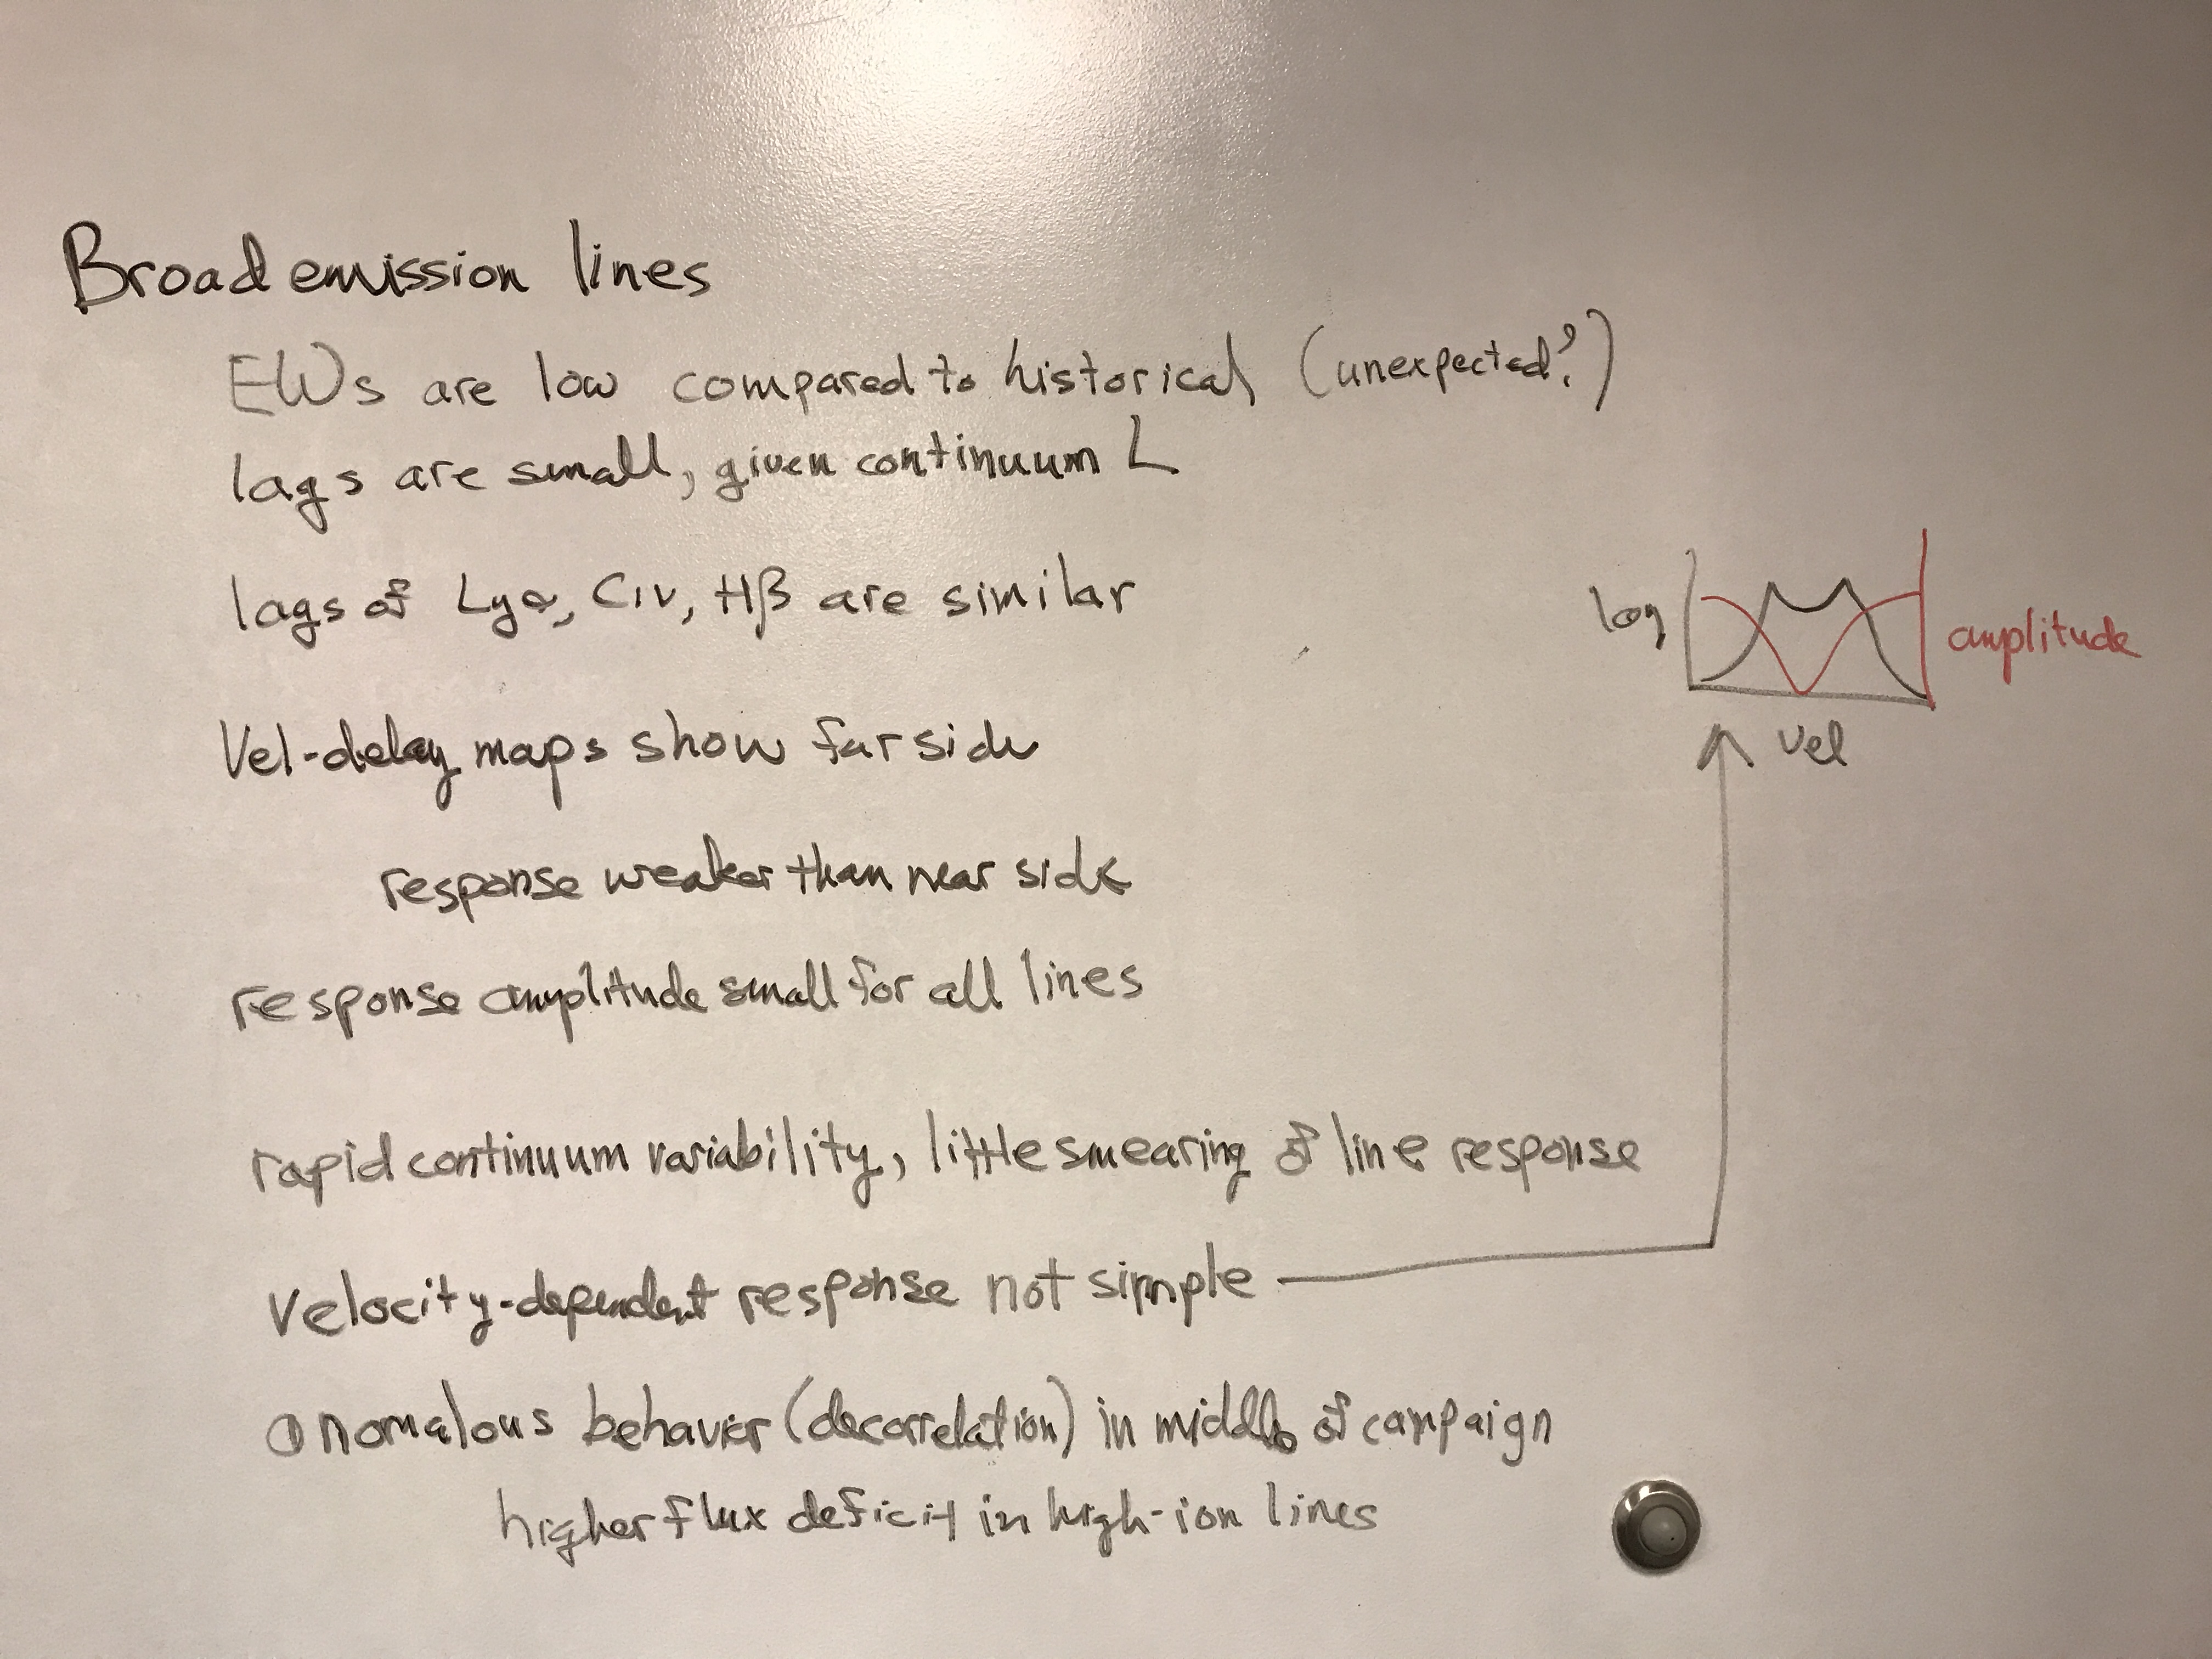 Broad emission lines
EWs are low compared to historical (unexpected?)
lags are small, given continuum L
lags of Lyα, CIV, Hβ are similar
Vel-delay maps show far side
response weaker than near side
response amplitude small for all lines
rapid continuum variability, little smearing of line response
velocity-dependent response not simple
anomalous behavior (decorrelation) in middle of campaign
higher flux deficit in high-ion lines
lag
amplitude
vel